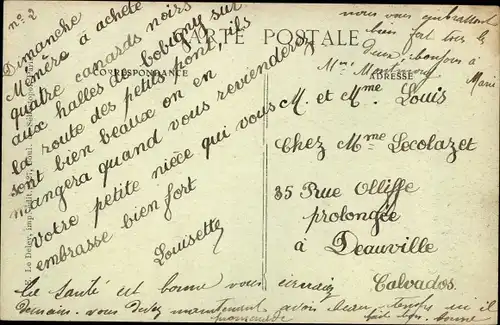 n° 2
CARTE POSTALE
CORRESPONDANCE
ADRESSE
Dimanche
Mémère a acheté
quatre canards noirs
aux halles de Bobigny sur
la route des petits pont, ils
sont bien beaux on en
mangera quand vous reviendera
Votre petite nièce qui vous
embrasse bien fort
Louisette
nous vous embrassent
bien fort tres les
deux. bonjour à
Mme
Marie
M. et Mme Louis
Chez Mme Lecolazet
35 Rue Olliffe
prolongée
à Deauville
Calvados.
la Santé est bonne vous
demain. vous devez maintenant avoir beau temps
promenade
fait bon. bonne